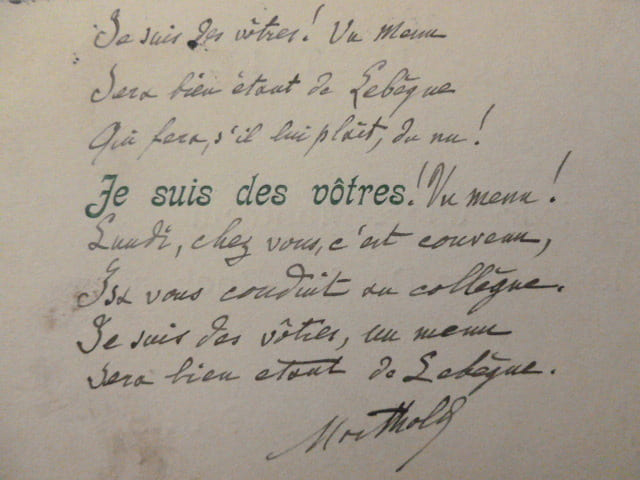 Je suis des vôtres! Un menu
Sera bien étant de Lebègue
Qui fera, s'il lui plaît, du nu!
Je suis des vôtres! Un menu!
Lundi, chez vous, c'est convenu,
vous conduit un collègue.
Je suis des vôtres, un menu
Sera bien etant de Lebègue.